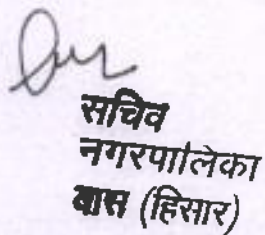 सचिव
नगरपालिका
बास (हिसार)